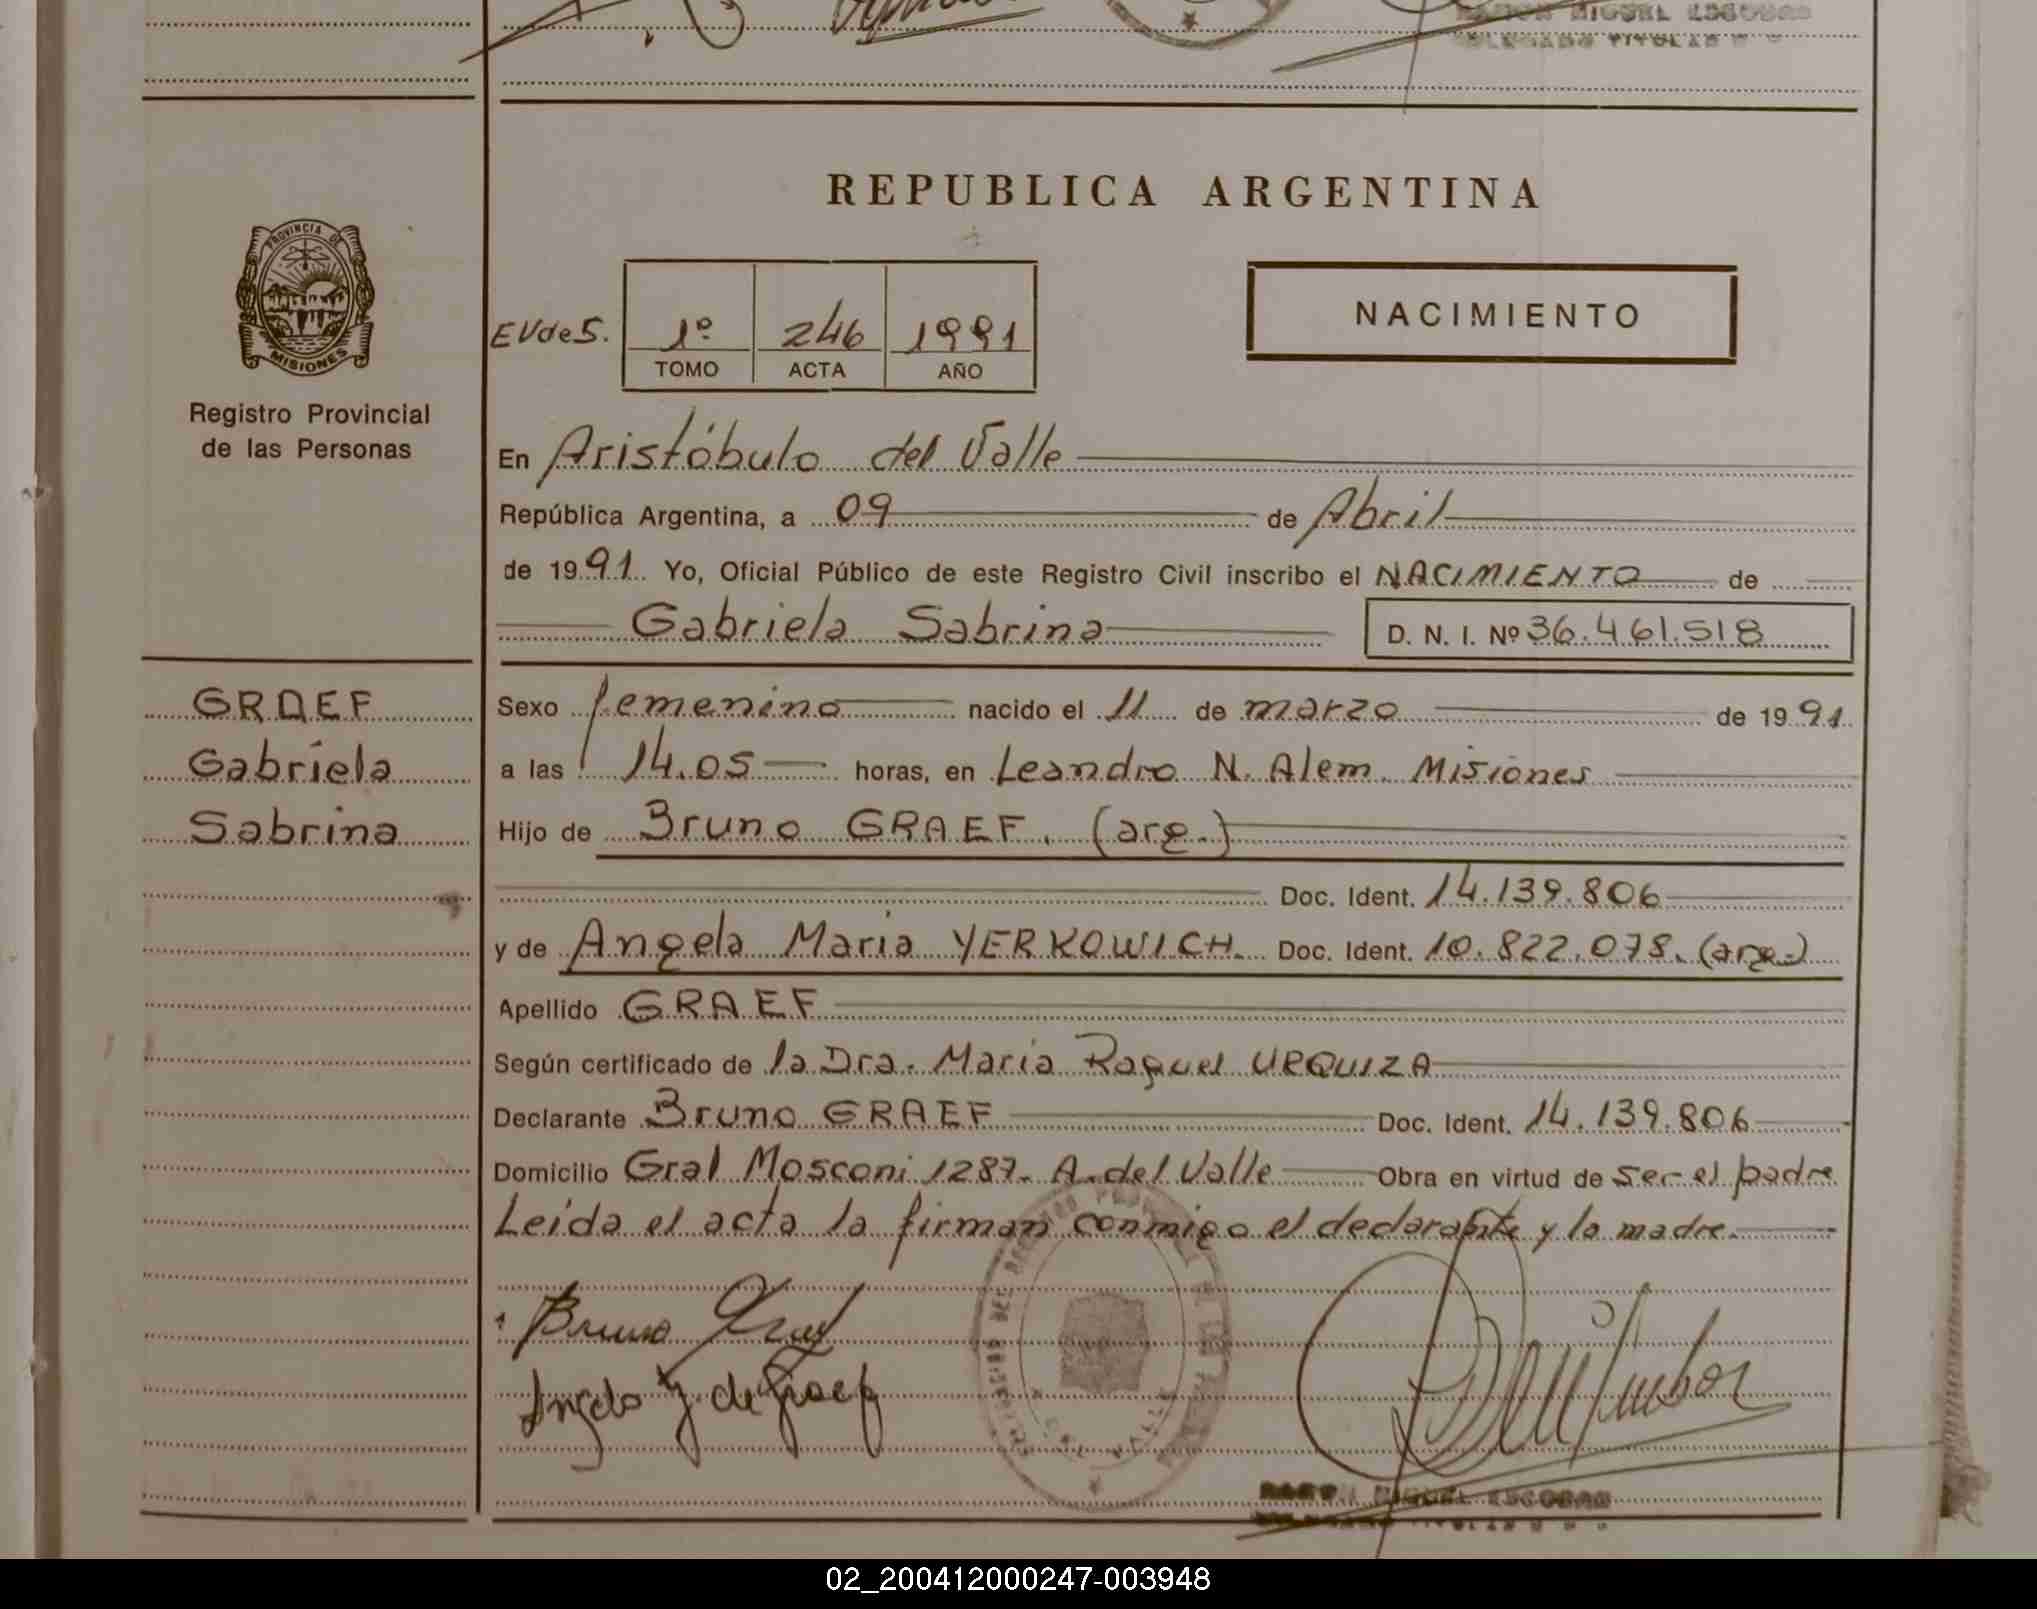 RAMON MIGUEL ESCOBAR
DELEGADO TITULAR
REPUBLICA ARGENTINA
PROVINCIA DE
MISIONES
Registro Provincial
de las Personas
EVdeS.
1º 246 1991
TOMO ACTA AÑO
NACIMIENTO
En Aristóbulo del Valle
República Argentina, a 09 de Abril
de 1991. Yo, Oficial Público de este Registro Civil inscribo el NACIMIENTO de
Gabriela Sabrina D. N. I. Nº 36.461.518
GRAEF
Gabriela
Sabrina
Sexo femenino nacido el 11 de marzo de 1991.
a las 14.05 horas, en Leandro N. Alem. Misiones
Hijo de Bruno GRAEF. (arg.)
Doc. Ident. 14.139.806
y de Angela Maria YERKOWICH. Doc. Ident. 10.822.078. (arg.)
Apellido GRAEF
Según certificado de la Dra. Maria Raquel URQUIZA
Declarante Bruno GRAEF Doc. Ident. 14.139.806
Domicilio Gral Mosconi 1287. A. del Valle Obra en virtud de ser el padre
Leída el acta la firman conmigo el declarante y la madre.
Bruno Graef
Angela Y. de Graef
RAMON MIGUEL ESCOBAR
DELEGADO TITULAR
02_200412000247-003948